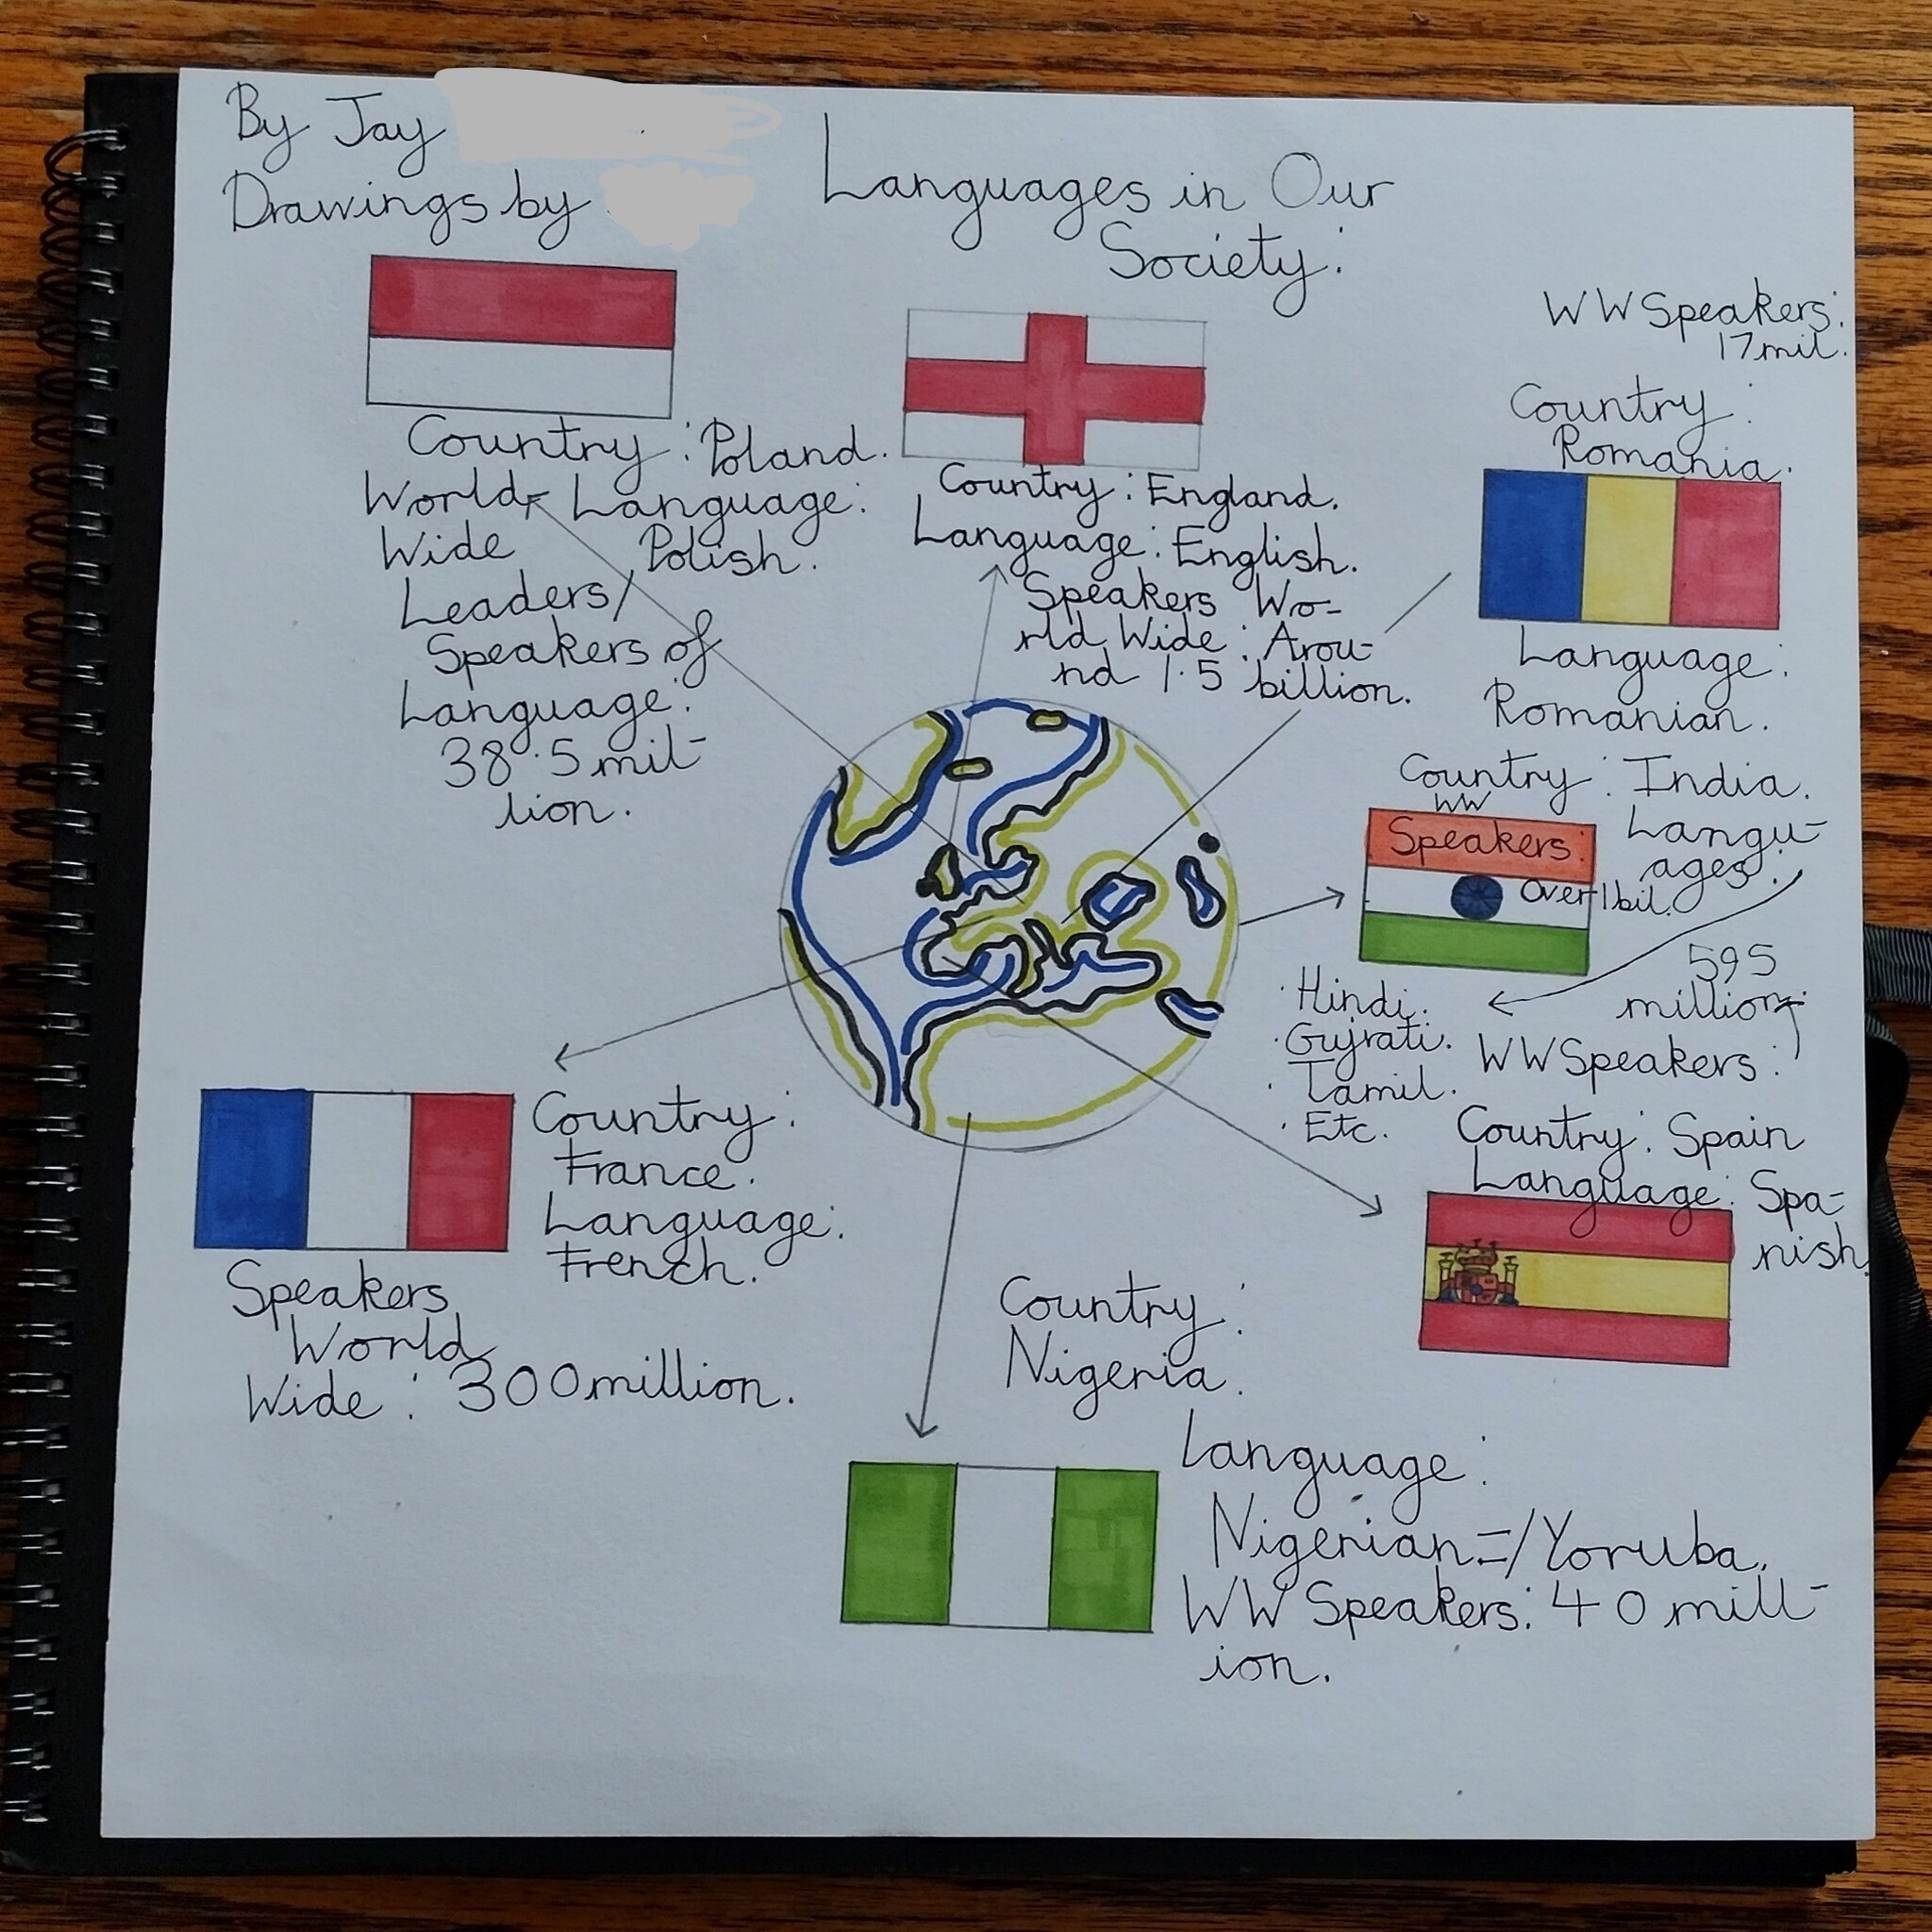 By Jay
Drawings by
Languages in Our
Society:
Country: Poland.
World Language:
Wide Polish.
Leaders/
Speakers of
Language:
38.5 mil-
lion.
Country: England.
Language: English.
Speakers Wo-
rld Wide: Arou-
nd 1.5 billion.
WW Speakers:
17 mil.
Country:
Romania.
Language:
Romanian.
Country: India.
WW
Speakers:
Over 1 bil.
Langu-
ages:
· Hindi.
· Gujrati.
· Tamil.
· Etc.
595
million
WW Speakers:
Country: Spain
Language: Spa-
nish.
Country:
France.
Language:
French.
Speakers
World
Wide: 300 million.
Country:
Nigeria.
Language:
Nigerian=/Yoruba.
WW Speakers: 40 mill-
ion.